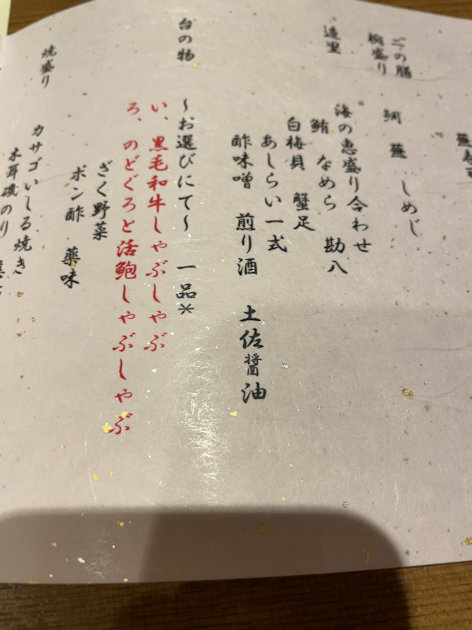 二の膳
椀盛り
鯛 蕪 しめじ
造里
海の恵盛り合わせ
鮪 なめら 勘八
白梅貝 蟹足
あしらい一式
酢味噌 煎り酒 土佐醤油
台の物
〜お選びにて〜 一品*
い、黒毛和牛しゃぶしゃぶ
ろ、のどぐろと活鮑しゃぶしゃぶ
ざく野菜
ポン酢 薬味
焼盛り
カサゴいしる焼き
木耳磯のり